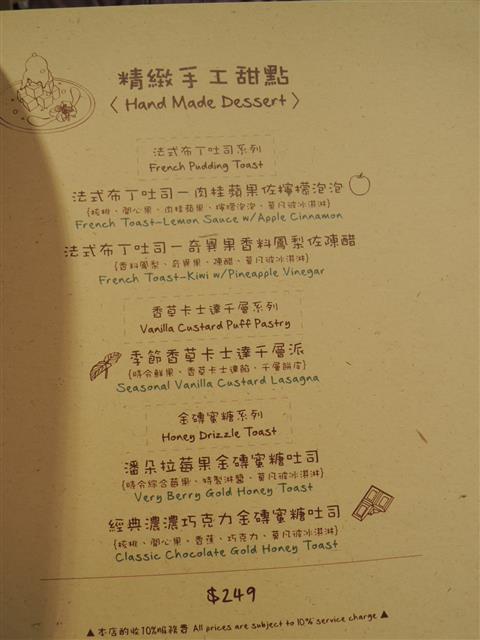 精緻手工甜點
〈 Hand Made Dessert 〉
法式布丁吐司系列
French Pudding Toast
法式布丁吐司－肉桂蘋果佐檸檬泡泡
{核桃、開心果、肉桂蘋果、檸檬泡泡、莫凡彼冰淇淋}
French Toast-Lemon Sauce w/Apple Cinnamon
法式布丁吐司－奇異果香料鳳梨佐陳醋
{香料鳳梨、奇異果、陳醋、莫凡彼冰淇淋}
French Toast-Kiwi w/Pineapple Vinegar
香草卡士達千層系列
Vanilla Custard Puff Pastry
季節香草卡士達千層派
{時令鮮果、香草卡士達餡、千層酥皮}
Seasonal Vanilla Custard Lasagna
金磚蜜糖系列
Honey Drizzle Toast
潘朵拉莓果金磚蜜糖吐司
{時令綜合莓果、特製淋醬、莫凡彼冰淇淋}
Very Berry Gold Honey Toast
經典濃濃巧克力金磚蜜糖吐司
{核桃、開心果、香蕉、巧克力、莫凡彼冰淇淋}
Classic Chocolate Gold Honey Toast
$249
▲ 本店酌收10%服務費 All prices are subject to 10% service charge ▲